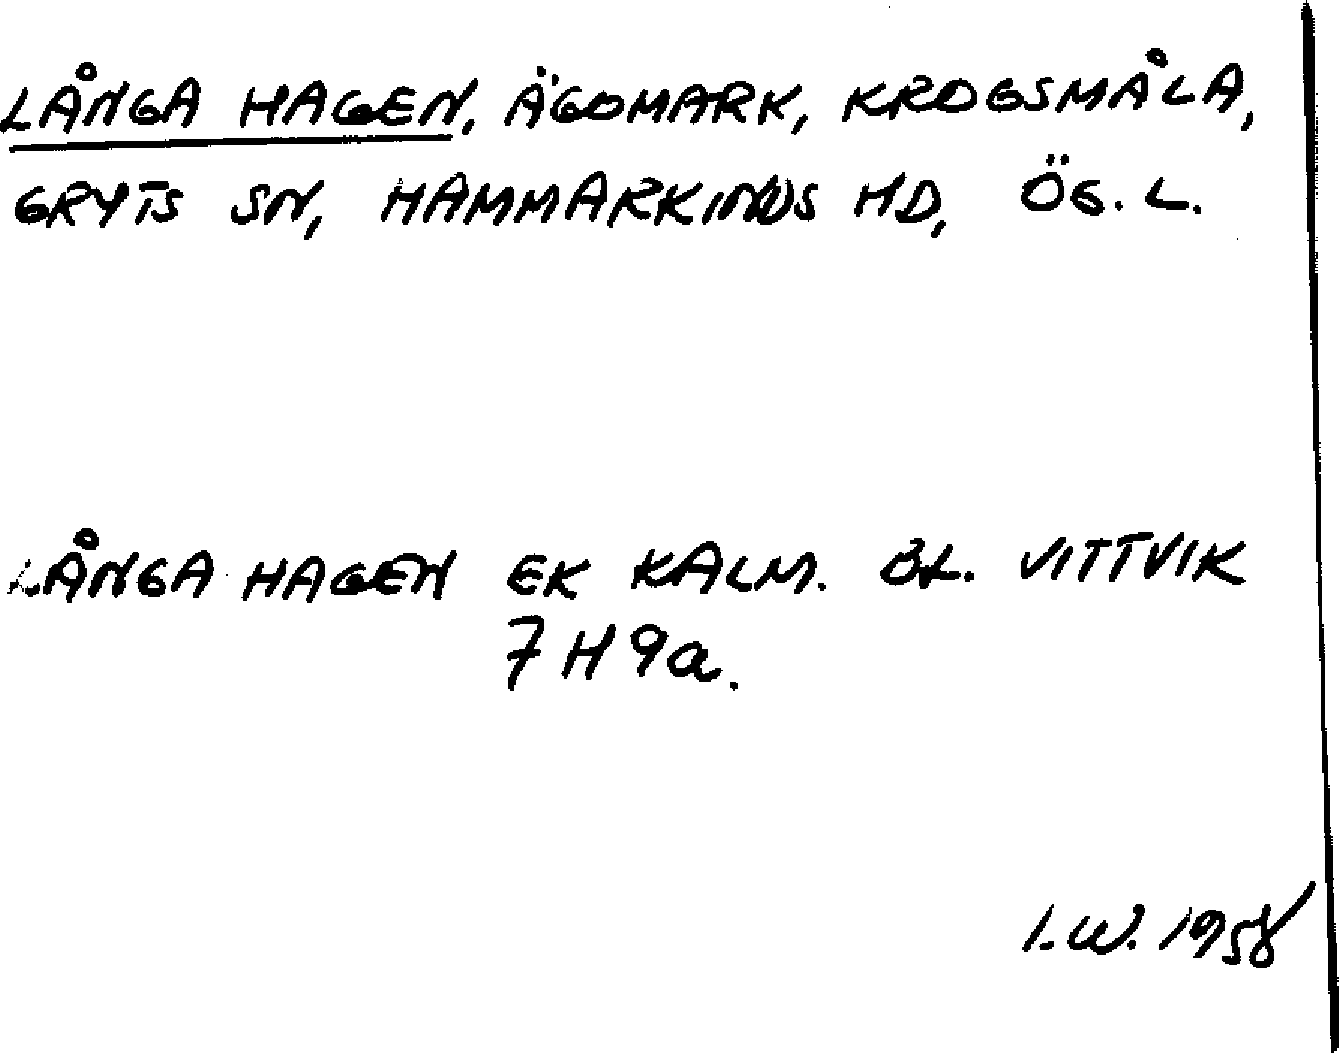 LÅNGA HAGEN, ÄGOMARK, KROGSMÅLA,
GRYTS SN, HAMMARKINDS HD, ÖG. L.
LÅNGA HAGEN EK KALM. BL. VITTVIK
7H9a.
I.W. 1958